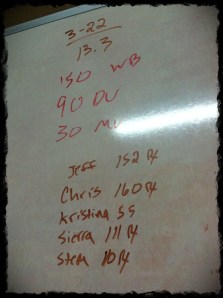 3-22
13.3
150 WB
90 DU
30 MU
Jeff 152 Rx
Chris 160 Rx
Kristina 55
Sierra 111 Rx
Stew 10 Rx